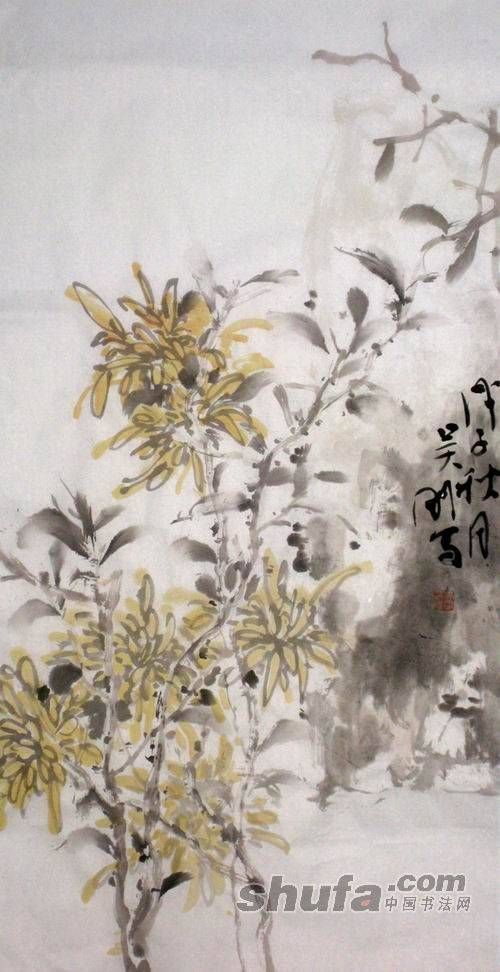 戊子秋月
吴刚写
shufa.com
中国书法网